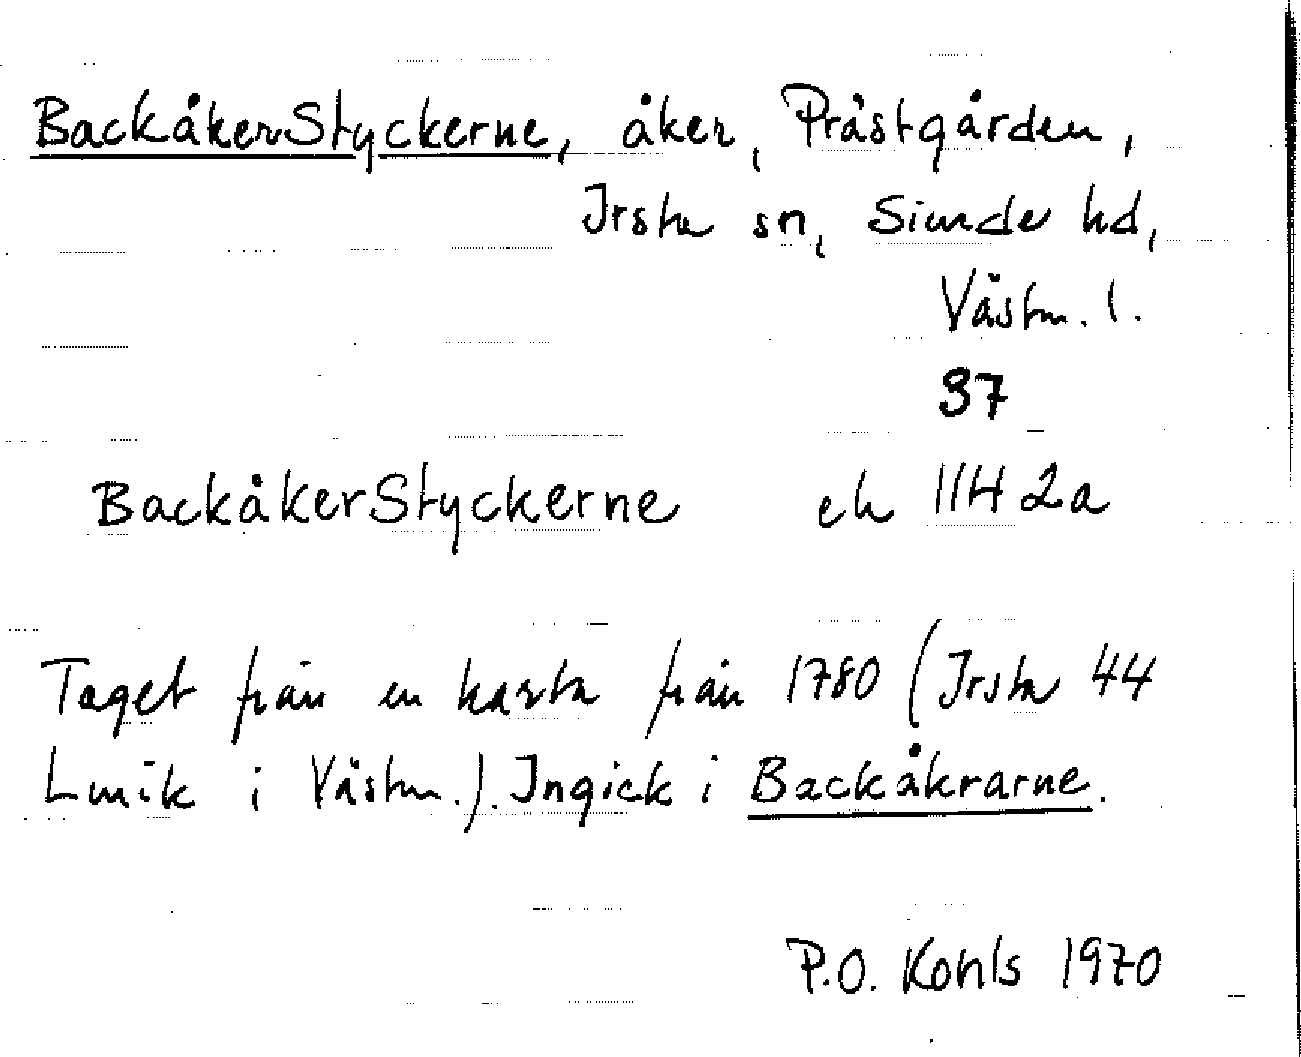 BackåkerStyckerne, åker, Prästgården,
Irsta sn, Siende hd,
Västm. l.
37
BackåkerStyckerne ek 11H 2a
Taget från en karta från 1780 (Irsta 44
Lmik i Västm.). Ingick i Backåkrarne.
P.O. Kohls 1970